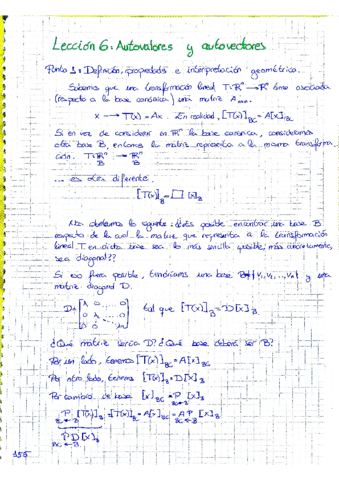 Lección 6: Autovalores y autovectores
Punto 1: Definición, propiedades e interpretación geométrica.
Sabemos que una transformación lineal T: ℝⁿ → ℝⁿ tiene asociada
(respecto a la base canónica) una matriz Aₙₓₙ.
x → T(x) = Ax. En realidad, [T(x)]_BC = A[x]_BC
Si en vez de considerar en ℝⁿ la base canónica, consideramos
otra base B, entonces la matriz representa a la misma transforma-
ción. T: ℝⁿ → ℝⁿ
B B
... es otra diferente.
[T(x)]_B = □ [x]_B
Nos planteamos lo siguiente: ¿Es posible encontrar una base B
respecto de la cual la matriz que representa a la transformación
lineal T en dicha base sea lo más sencilla posible; más concretamente,
sea diagonal??
Si eso fuera posible, tendríamos una base B = {v₁, v₂, ..., vₙ} y una
matriz diagonal D.
D = [λ 0 ... 0
0 λ ... 0
0 0 ... λ] tal que [T(x)]_B = D[x]_B
¿Qué matriz sería D? ¿Qué base debería ser B?
Por un lado, tenemos [T(x)]_BC = A[x]_BC
Por otro lado, tenemos [T(x)]_B = D[x]_B
Por cambio de base [x]_BC = P [x]_B
BC ← B
P [T(x)]_B = [T(x)]_BC = A[x]_BC = A P [x]_B
BC ← B BC ← B
P D [x]_B
BC ← B
155